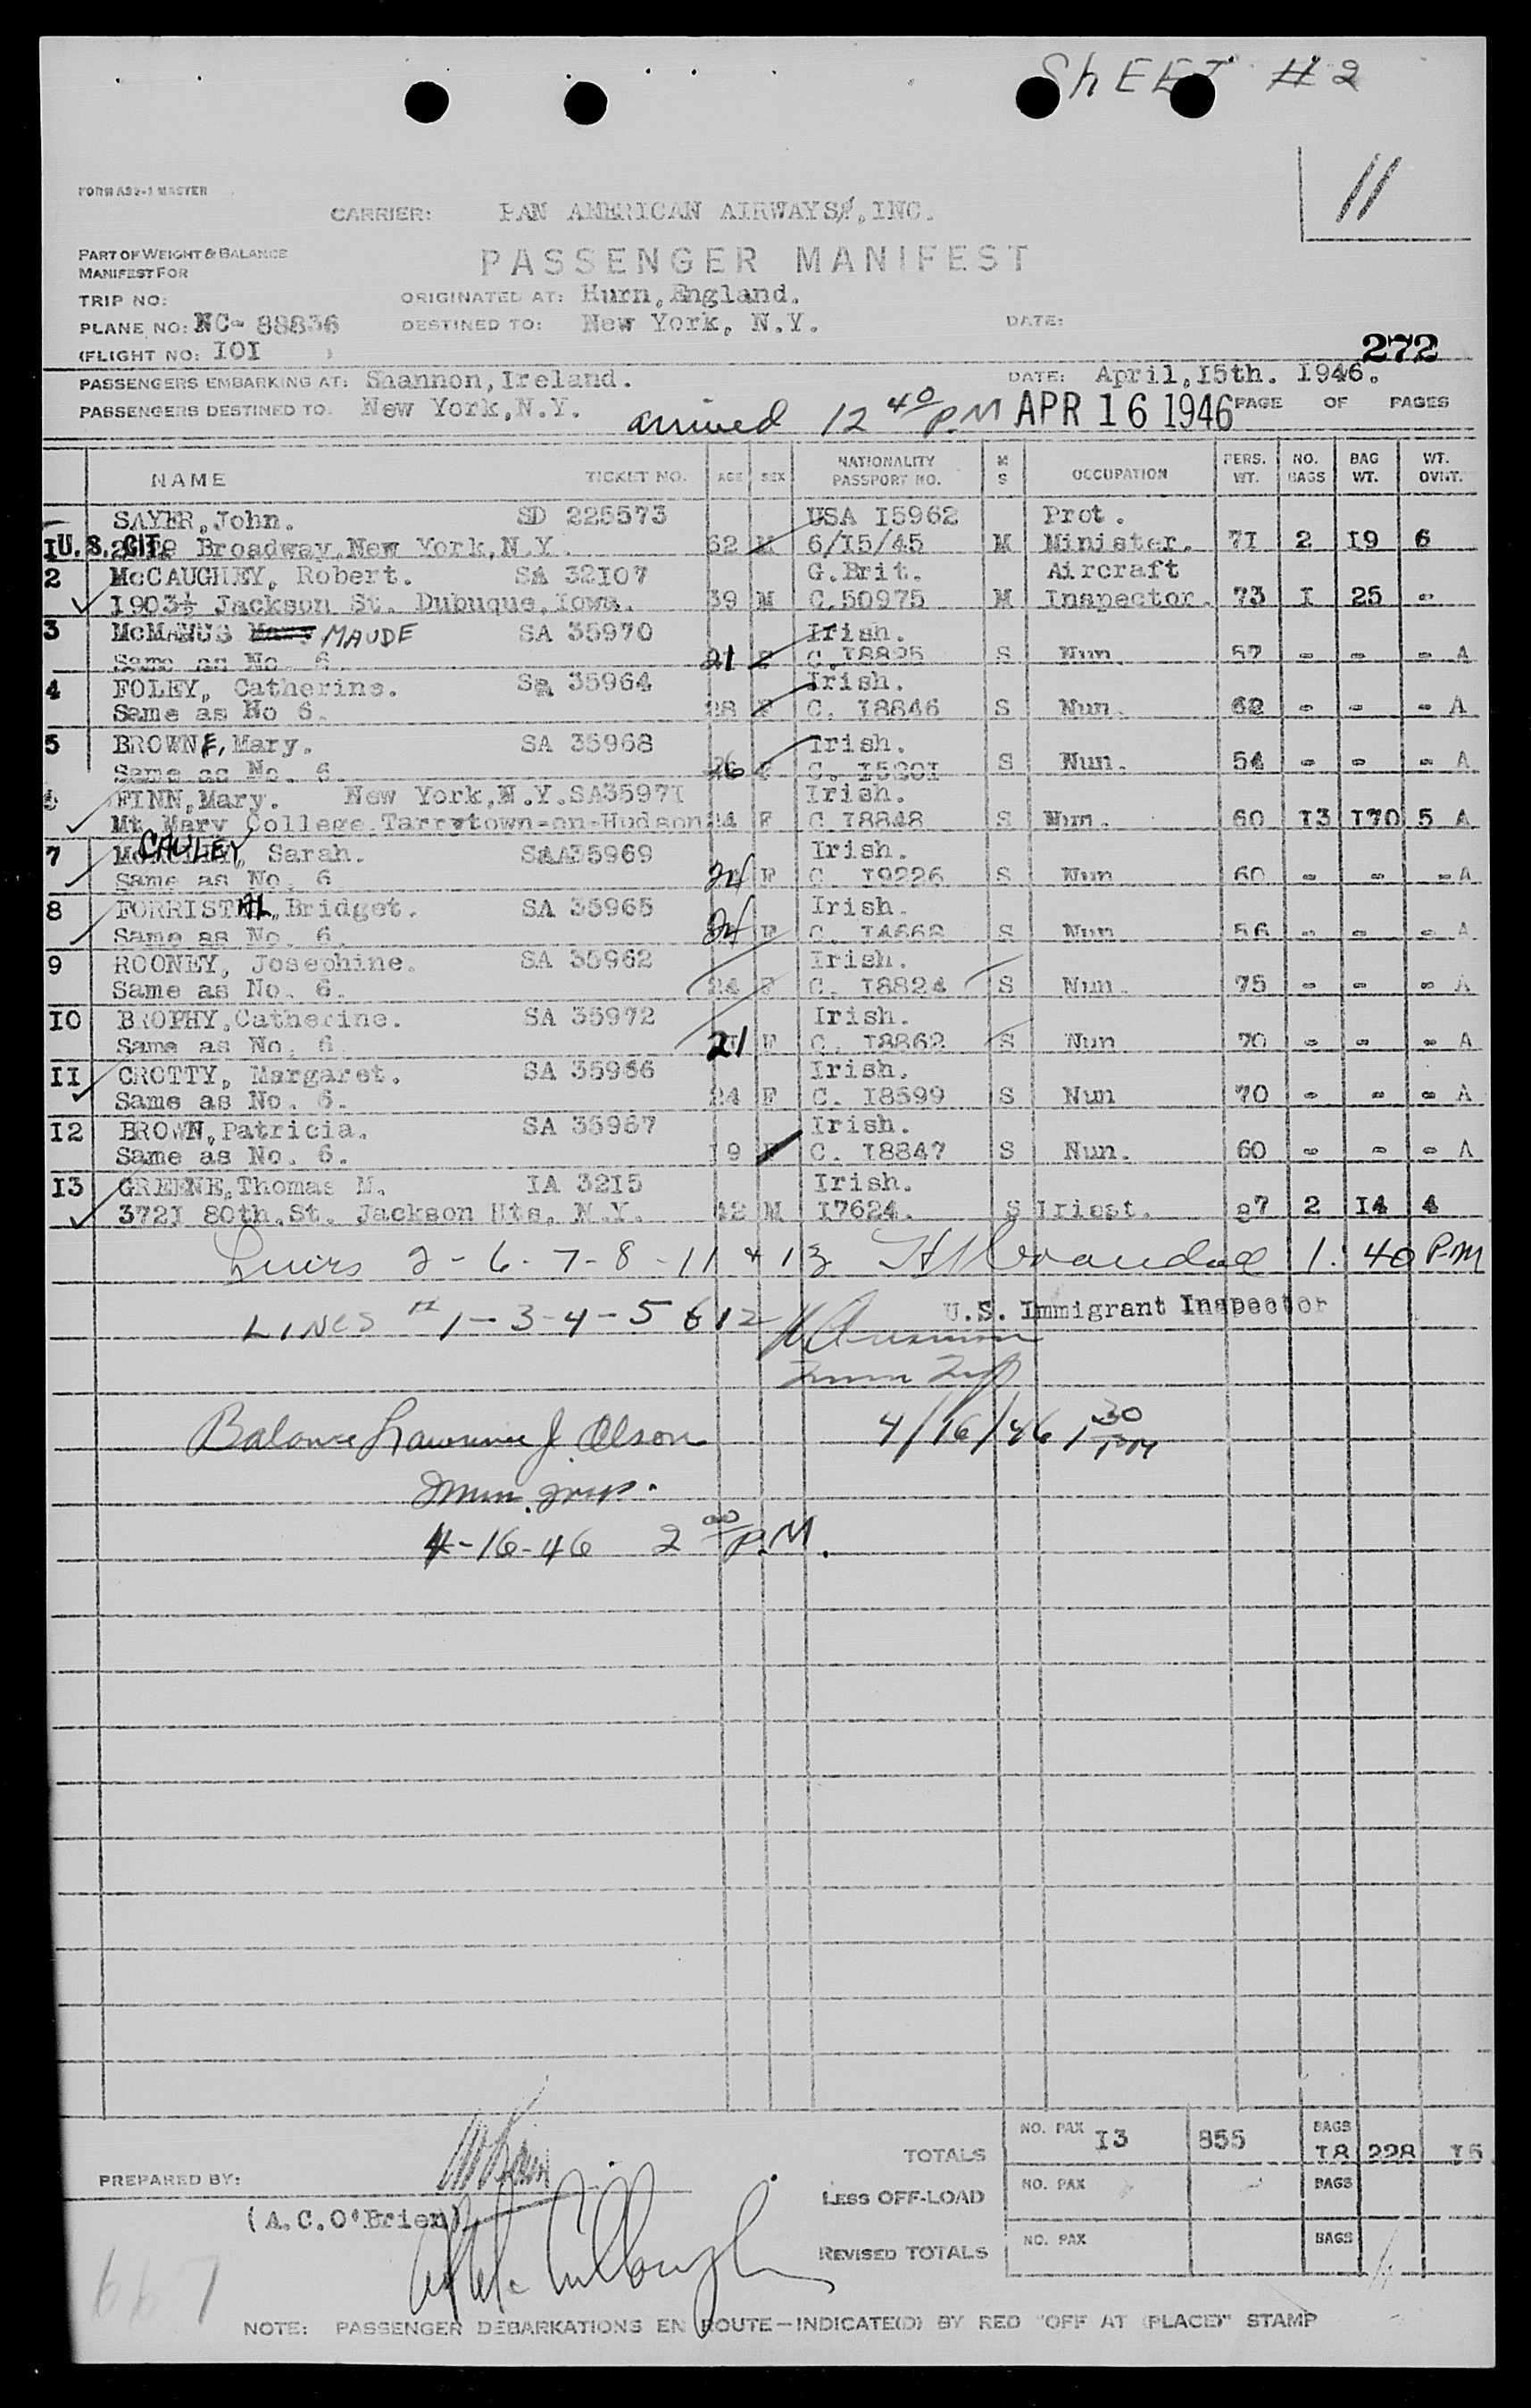 ShEET #2
11
FORM AS2-1 MASTER
CARRIER: PAN AMERICAN AIRWAYS, INC.
PART OF WEIGHT & BALANCE
MANIFEST FOR
PASSENGER MANIFEST
TRIP NO:
ORIGINATED AT: Hurn, England.
PLANE NO: NC- 88836
DESTINED TO: New York, N.Y.
DATE:
(FLIGHT NO: I0I )
272
PASSENGERS EMBARKING AT: Shannon, Ireland.
DATE: April, I5th. I946.
PASSENGERS DESTINED TO: New York, N.Y.
arrived 12 40 P.M APR 16 1946 PAGE OF PAGES
NAME TICKET NO. AGE SEX NATIONALITY PASSPORT NO. M S OCCUPATION PERS. WT. NO. BAGS BAG WT. WT. OVWT.
SAYER, John. SD 225573 USA I5962 Prot.
I U.S. CIT. Broadway, New York, N.Y. 62 M 6/I5/45 M Minister. 7I 2 I9 6
2 McCAUGHEY, Robert. SA 32I07 G.Brit. Aircraft
I903½ Jackson St. Dubuque, Iowa. 39 M C.50975 M Inspector. 73 I 25 -
3 McMANUS MAUDE SA 35970 Irish.
Same as No. 6. 21 F C.I8825 S Nun. 57 - - - A
4 FOLEY, Catherine. Sa 35964 Irish.
Same as No 6. 28 F C. I8846 S Nun. 62 - - - A
5 BROWNE, Mary. SA 35968 Irish.
Same as No. 6. 26 F C. I520I S Nun. 54 - - - A
6 FINN, Mary. New York, N.Y. SA3597I Irish.
Mt Mary College. Tarrytown-on-Hudson 24 F C I8848 S Nun. 60 I3 I70 5 A
7 McCAULEY, Sarah. SAA35969 Irish.
Same as No. 6 24 F C. I9226 S Nun 60 - - - A
8 FORRISTAL, Bridget. SA 35965 Irish.
Same as No. 6. 24 F C. I4668 S Nun 56 - - - A
9 ROONEY, Josephine. SA 35962 Irish.
Same as No. 6. 24 F C. I8824 S Nun. 75 - - - A
I0 BROPHY, Catherine. SA 35972 Irish.
Same as No. 6 21 F C. I8862 S Nun 70 - - - A
II CROTTY, Margaret. SA 35966 Irish.
Same as No. 6. 24 F C. I8599 S Nun 70 - - - A
I2 BROWN, Patricia. SA 35967 Irish.
Same as No. 6. I9 F C. I8847 S Nun. 60 - - - A
I3 GREENE, Thomas M. IA 32I5 Irish.
372I 80th. St. Jackson Hts, N.Y. 42 M I7624. S Iriest. 87 2 I4 4
Lines 2-6-7-8-11 & 13 1:40 P.M
U.S. Immigrant Inspector
LINES # 1-3-4-5 & 12
Balance Lawrence J. Olson 4/16/46 1 30 PM
Imm. Insp.
4-16-46 2 00 P.M.
TOTALS NO. PAX I3 855 BAGS I8 228 I5
PREPARED BY:
LESS OFF-LOAD NO. PAX BAGS
(A.C.O'Brien)
REVISED TOTALS NO. PAX BAGS
667
NOTE: PASSENGER DEBARKATIONS EN ROUTE—INDICATE(D) BY RED "OFF AT (PLACE)" STAMP